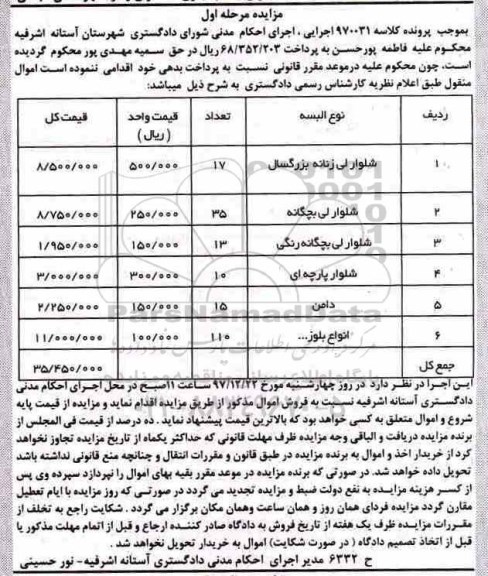 مزایده مرحله اول
بموجب پرونده کلاسه ۹۷۰۰۳۱ اجرایی ، اجرای احکام مدنی شورای دادگستری شهرستان آستانه اشرفیه
محکوم علیه فاطمه پورحسن به پرداخت ۶۸/۳۵۲/۲۰۳ ریال در حق سمیه مهدی پور محکوم گردیده
است. چون محکوم علیه درموعد مقرر قانونی نسبت به پرداخت بدهی خود اقدامی ننموده است اموال
منقول طبق اعلام نظریه کارشناس رسمی دادگستری به شرح ذیل میباشد:
ردیف نوع البسه تعداد قیمت واحد (ریال) قیمت کل
۱ شلوار لی زنانه بزرگسال ۱۷ ۵۰۰/۰۰۰ ۸/۵۰۰/۰۰۰
۲ شلوار لی بچگانه ۳۵ ۲۵۰/۰۰۰ ۸/۷۵۰/۰۰۰
۳ شلوار لی بچگانه رنگی ۱۳ ۱۵۰/۰۰۰ ۱/۹۵۰/۰۰۰
۴ شلوار پارچه ای ۱۰ ۳۰۰/۰۰۰ ۳/۰۰۰/۰۰۰
۵ دامن ۱۵ ۱۵۰/۰۰۰ ۲/۲۵۰/۰۰۰
۶ انواع بلوز... ۱۱۰ ۱۰۰/۰۰۰ ۱۱/۰۰۰/۰۰۰
جمع کل ۳۵/۴۵۰/۰۰۰
این اجرا در نظر دارد در روز چهارشنبه مورخ ۹۷/۱۲/۲۲ ساعت ۱۱صبح در محل اجرای احکام مدنی
دادگستری آستانه اشرفیه نسبت به فروش اموال مذکور از طریق مزایده اقدام نماید و مزایده از قیمت پایه
شروع و اموال متعلق به کسی خواهد بود که بالاترین قیمت پیشنهاد نماید . ده درصد از قیمت فی المجلس از
برنده مزایده دریافت و الباقی وجه مزایده ظرف مهلت قانونی که حداکثر یکماه از تاریخ مزایده تجاوز نخواهد
کرد از خریدار اخذ و اموال به برنده مزایده در طبق قانون و مقررات انتقال و چنانچه منع قانونی نداشته باشد
تحویل داده خواهد شد. در صورتی که برنده مزایده در موعد مقرر بقیه بهای اموال را نپردازد سپرده وی پس
از کسر هزینه مزایده به نفع دولت ضبط و مزایده تجدید می گردد در صورتی که روز مزایده با ایام تعطیل
مقارن گردد مزایده فردای همان روز و همان ساعت وهمان مکان برگزار می گردد . شکایت راجع به تخلف از
مقررات مزایده ظرف یک هفته از تاریخ فروش به دادگاه صادر کننده ارجاع و قبل از اتمام مهلت مذکور یا
قبل از اتخاذ تصمیم دادگاه ( در صورت شکایت) اموال به خریدار تحویل نخواهد شد .
ح ۶۳۳۲ مدیر اجرای احکام مدنی دادگستری آستانه اشرفیه- نور حسینی
ParsNamadData